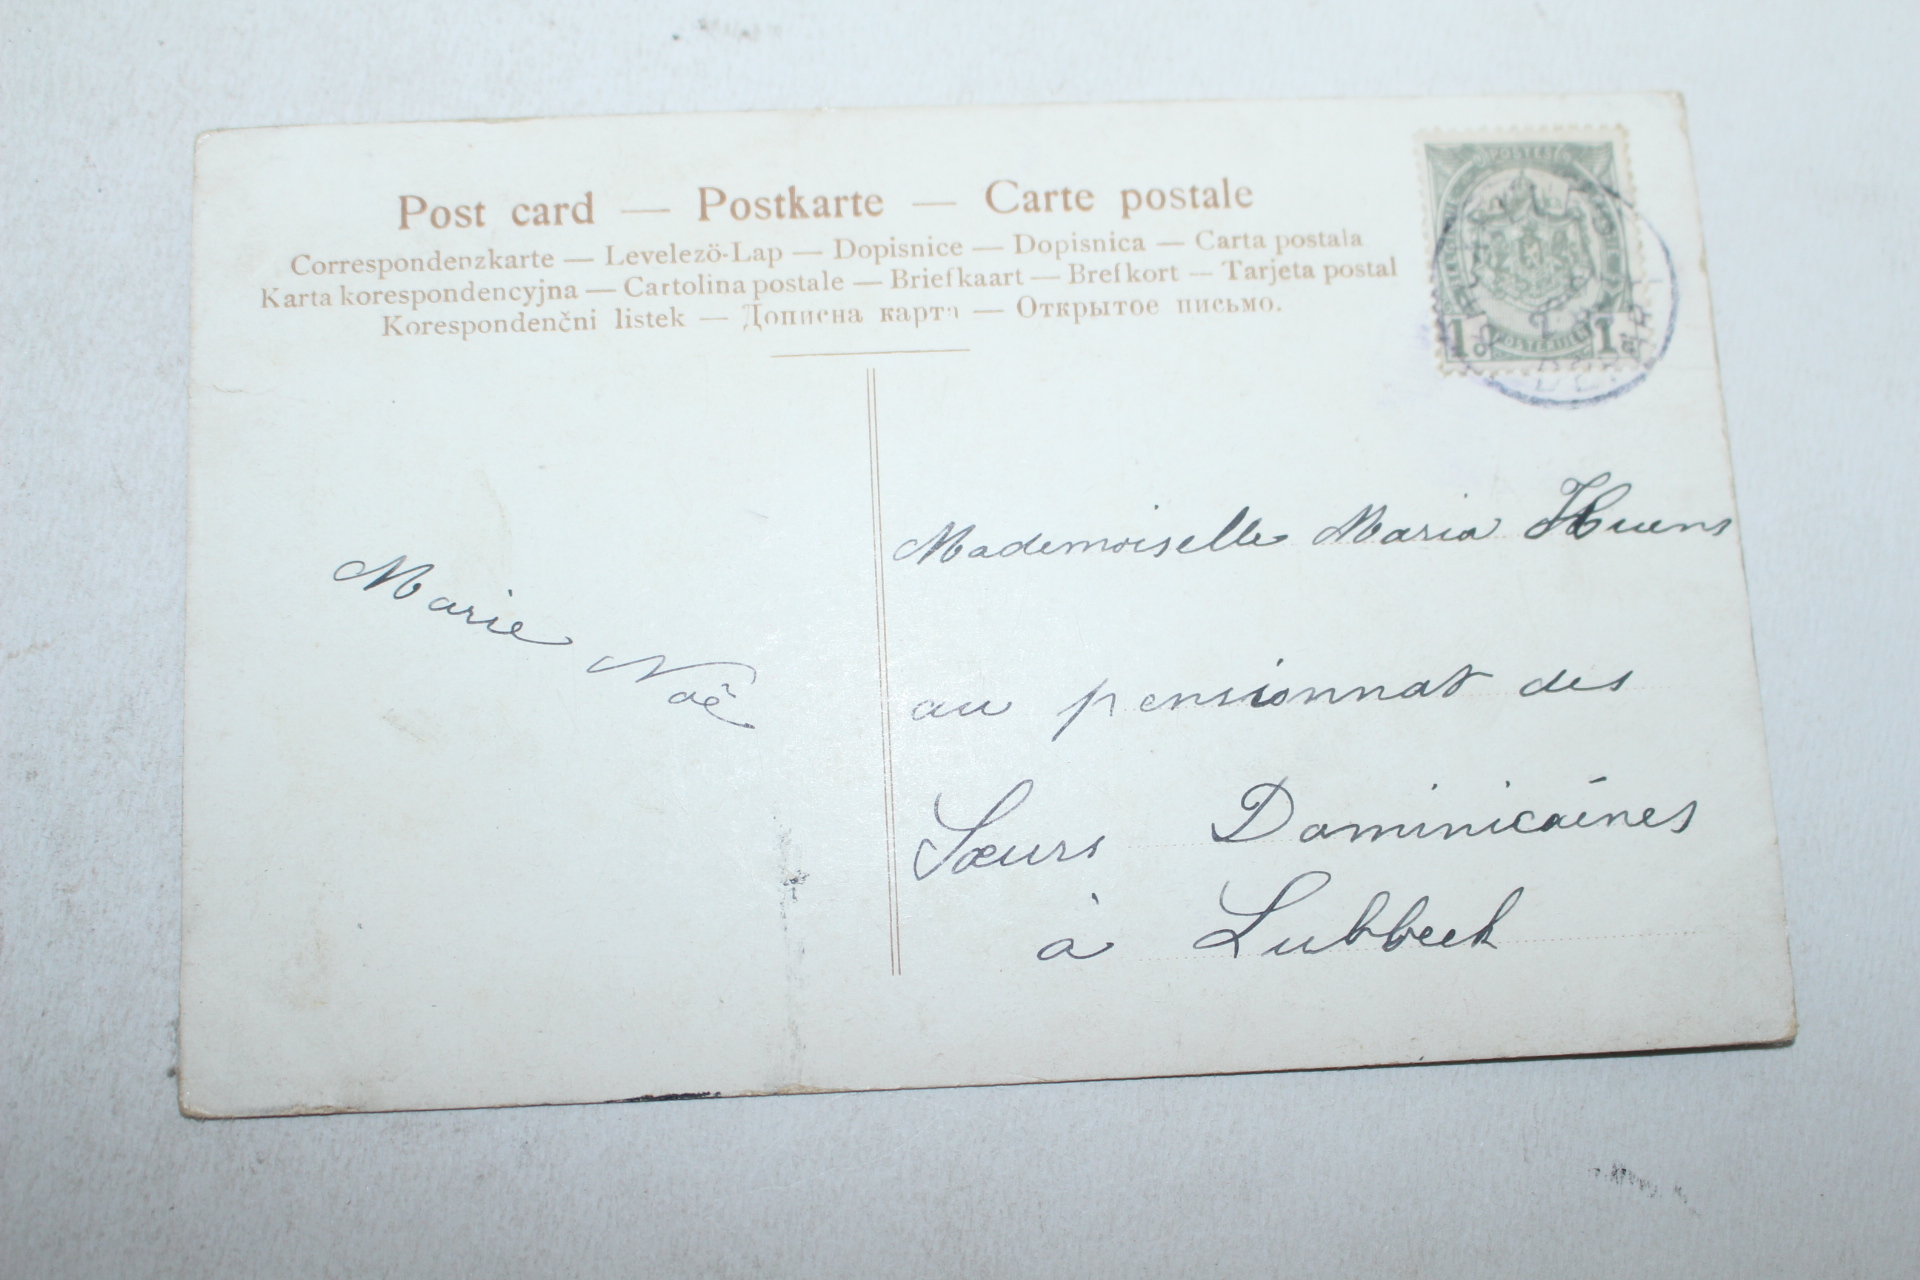 Post card — Postkarte — Carte postale
Correspondenzkarte — Levelezö-Lap — Dopisnice — Dopisnica — Carta postala
Karta korespondencyjna — Cartolina postale — Briefkaart — Brefkort — Tarjeta postal
Korespondenčni listek — Дописна карта — Открытое письмо.
POSTES
1c 1c
Marie Noë
Mademoiselle Maria Huens
au pensionnat des
Sœurs Dominicaines
à Lubbeek